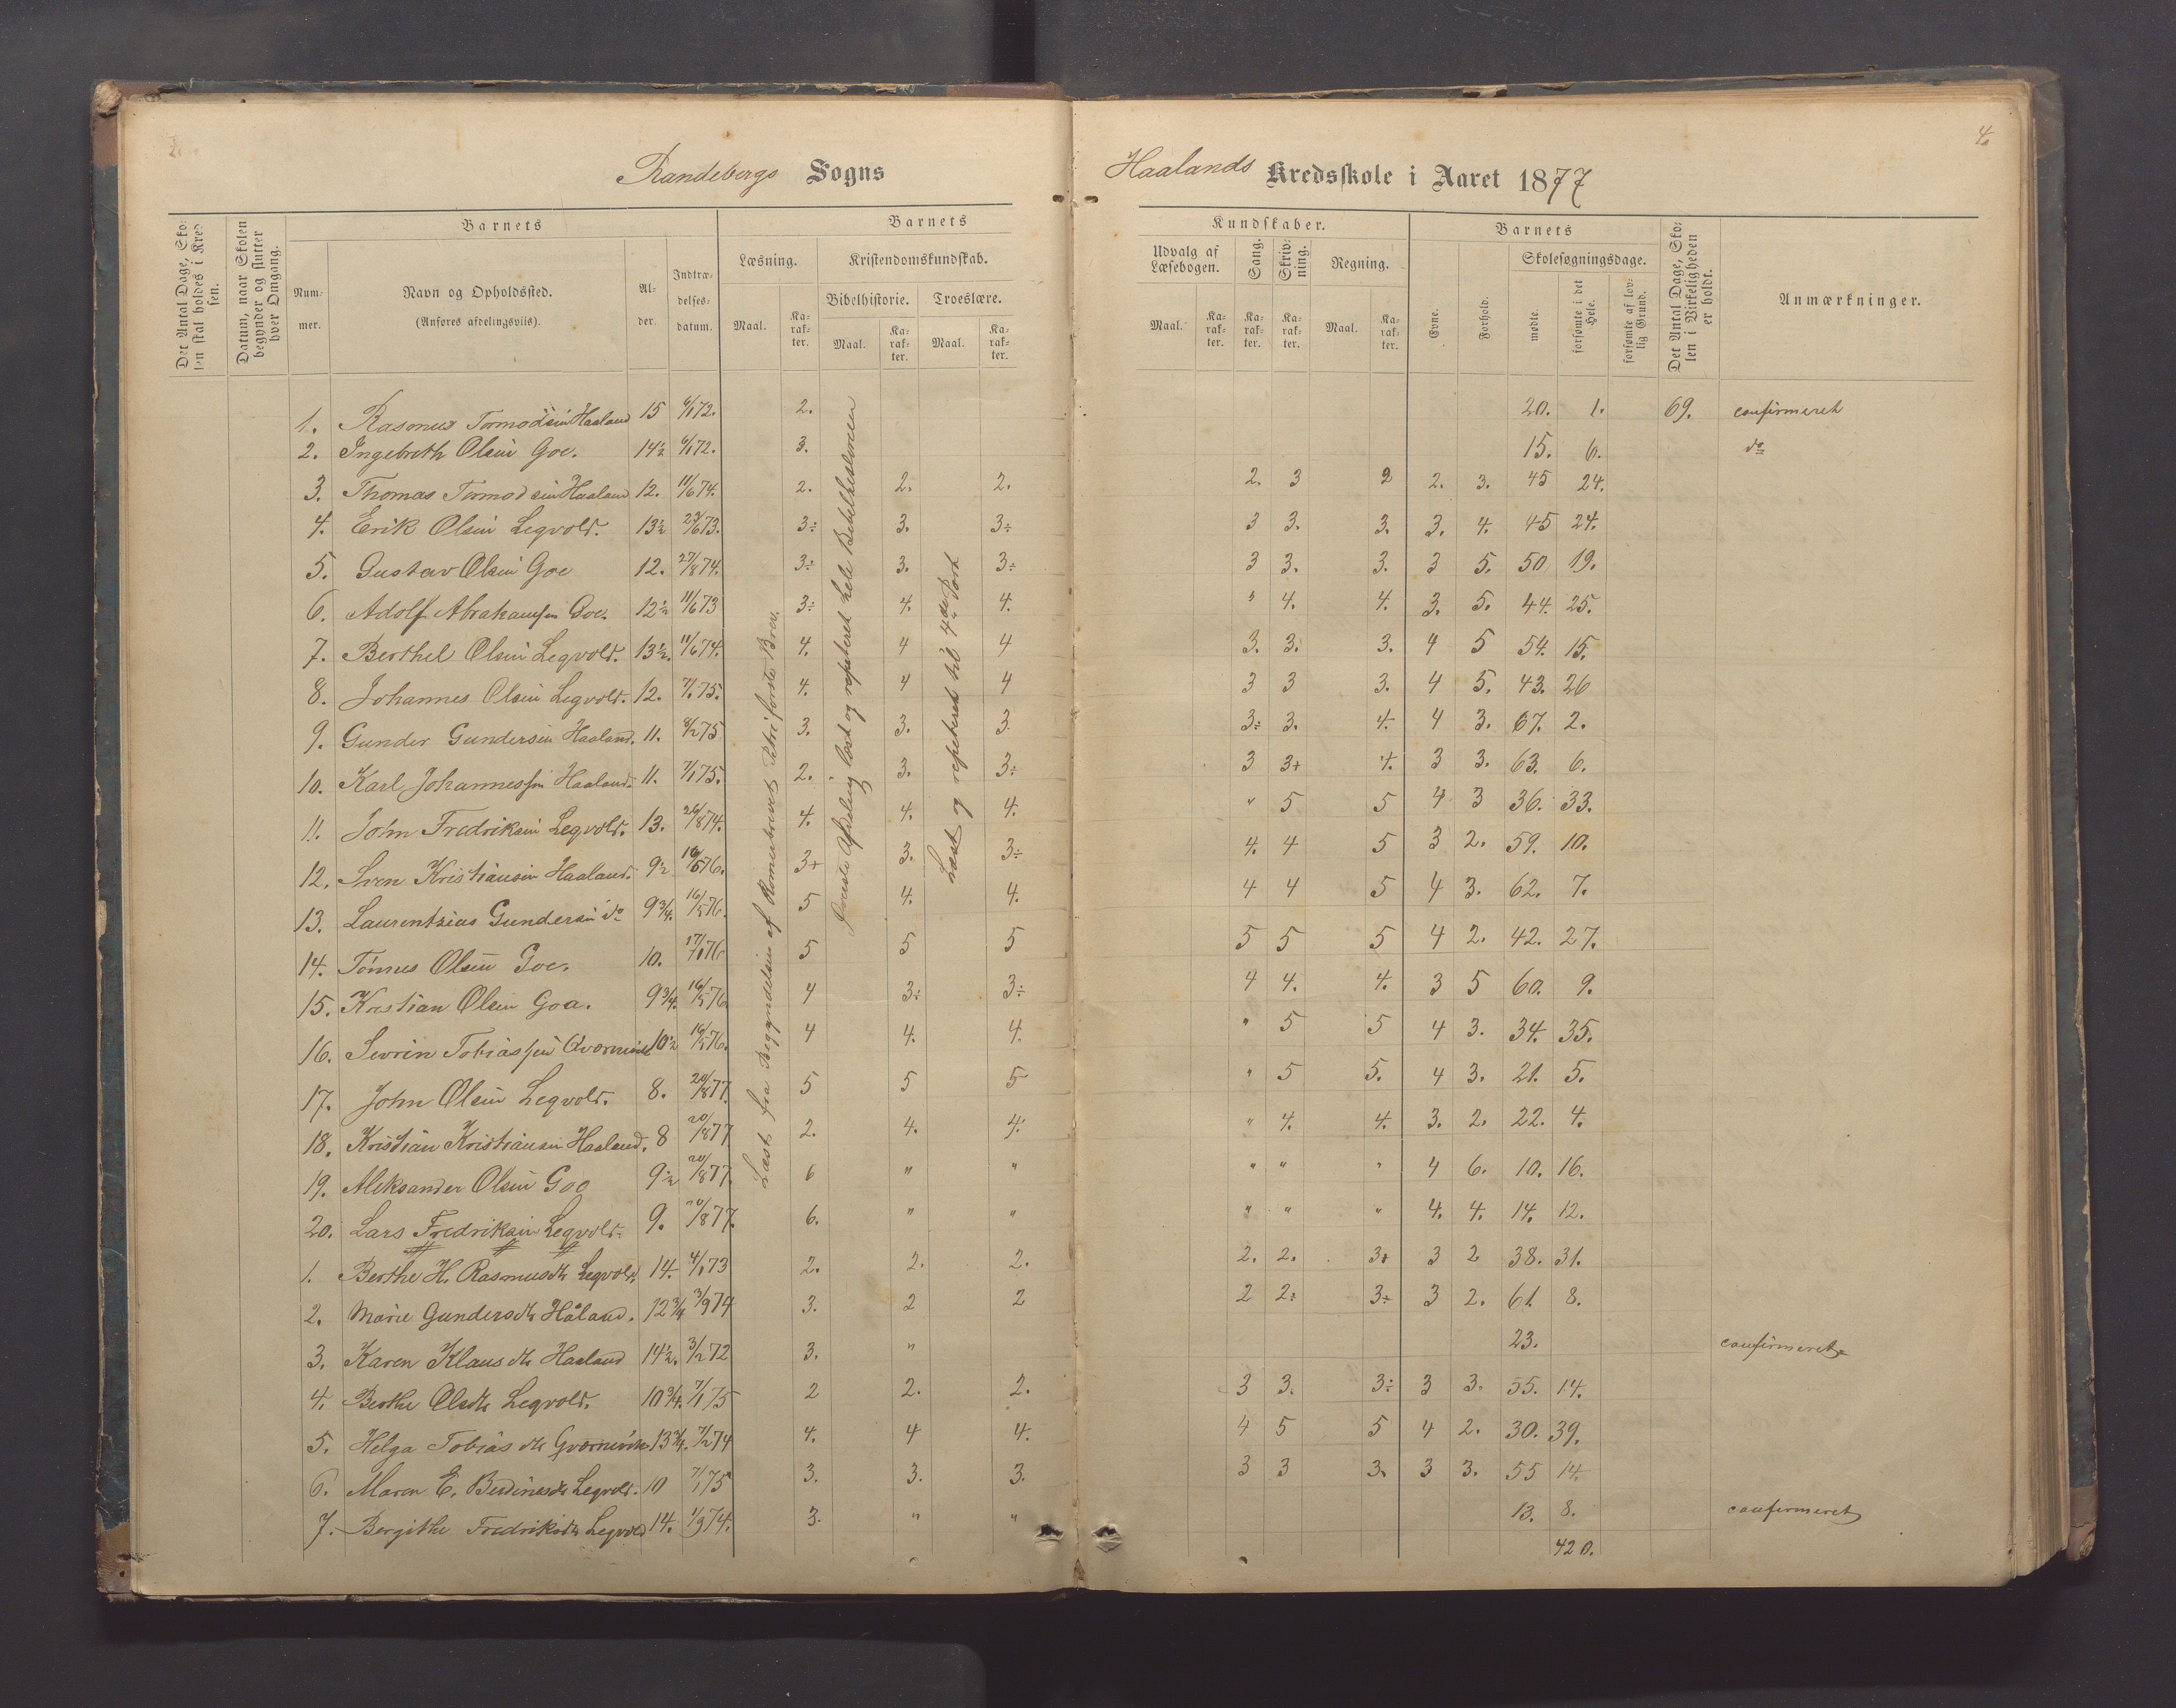 2.
4.
Randebergs Sogns
Haalands Kredsskole i Aaret 1877
Det Antal Dage, Sko-
len skal holdes i Kred
sen.
Datum, naar Skolen
begynder og slutter
hver Omgang.
Barnets
Num-
mer.
Navn og Opholdssted.
(Anføres afdelingsviis).
Al-
der.
Indtræ-
delses-
datum.
Barnets
Læsning.
Maal.
Ka-
rak-
ter.
Kristendomskundskab.
Bibelhistorie.
Maal.
Ka-
rak-
ter.
Troeslære.
Maal.
Ka-
rak-
ter.
Kundskaber.
Udvalg af
Læsebogen.
Maal.
Ka-
rak-
ter.
Sang.
Ka-
rak-
ter.
Skriv-
ning.
Ka-
rak-
ter.
Regning.
Maal.
Ka-
rak-
ter.
Barnets
Evne.
Forhold.
Skolesøgningsdage.
mødte.
forsømte i det
Hele.
forsømte af lov-
lig Grund.
Det Antal Dage, Sko-
len i Virkeligheden
er holdt.
Anmærkninger.
1. Rasmus Tormodsen Haaland 15 6/1 72. 2. 20. 1. 69. confirmeret
2. Ingebreth Olsen Goe. 14½ 6/1 72. 3. 15. 6. do
3. Thomas Tormodsen Haaland 12. 11/6 74. 2. 2. 2. 2. 3 2 2. 3. 45 24.
4. Erik Olsen Legvold. 13½ 23/6 73. 3÷ 3. 3÷ 3 3. 3. 3. 4. 45 24.
5. Gustav Olsen Goe 12. 27/8 74. 3÷ 3. 3÷ 3 3. 3. 3 5. 50 19.
6. Adolf Abrahamsen Goe. 12½ 11/6 73 3÷ 4. 4. " 4. 4. 3. 5. 44. 25.
7. Berthel Olsen Legvold. 13½. 11/6 74. 4. 4 4 3. 3. 3. 4 5 54. 15.
8. Johannes Olsen Legvold. 12. 7/1 75. 4. 4 4 3 3 3. 4 5. 43. 26
9. Gunder Gundersen Haaland. 11. 8/2 75 3. 3. 3. 3÷ 3. 4. 4 3. 67. 2.
10. Karl Johannessen Haaland. 11. 7/1 75. 2. 3. 3÷ 3 3+ 4. 3 3. 63. 6.
11. John Fredriksen Legvold. 13. 26/8 74. 4. 4. 4. " 5 5 4 3 36. 33.
12. Sven Kristiansen Haaland. 9½ 16/5 76. 3+ 3. 3÷ 4. 4 5 3 2. 59. 10.
13. Laurentzius Gundersen do 9¾. 16/5 76. 5 4. 4. 4 4 5 4 3. 62. 7.
14. Tønnes Olsen Goe. 10. 17/1 76 5 5 5 5 5 5 4 2. 42. 27.
15. Kristian Olsen Goa. 9¾. 16/5 76 4 3÷ 3÷ 4 4. 4. 3 5 60. 9.
16. Sevrin Tobiassen Qvernevik 10½ 16/5 76. 4 4. 4. " 5 5 4 3. 34. 35.
17. John Olsen Legvold. 8. 20/8 77. 5 5 5 " 5 5. 4 3. 21. 5.
18. Kristian Kristiansen Haaland. 8 20/8 77 2. 4. 4. " 4. 4. 3. 2. 22. 4.
19. Aleksander Olsen Goo 9½ 20/8 77. 6 " " " " " 4 6. 10. 16.
20. Lars Fredriksen Legvold. 9. 20/8 77. 6. " " " " " 4. 4. 14. 12.
1. Berthe H. Rasmusdtr Legvold. 14. 4/1 73 2. 2. 2. 2. 2. 3+ 3 2 38. 31.
2. Marie Gundersdtr Håland. 12¾ 3/9 74 3. 2 2 2 2÷ 3÷ 3 2. 61. 8.
3. Karen Klausdtr Haaland 14½. 3/2 72 3. " 23. confirmeret
4. Berthe Olsdtr Legvold. 10¾. 7/1 75 2 2. 2. 3 3. 3÷ 3 3. 55. 14.
5. Helga Tobiasdtr Qvernevik 13¾. 7/2 74 4. 4 4. 4 5 5 4 2. 30. 39.
6. Maren E. Berdinesdtr Legvold. 10 7/1 75 3. 3. 3. 3 3 3. 3 3. 55 14.
7. Bergithe Fredriksdtr Legvold 14. 1/9 74. 3. " " 13. 8. confirmeret
420.
Læst fra Begyndelsen af Romerbrevet til Petri første Brev.
Første Afdeling læst og repeteret hele Bibelhistorien
Læst og repeteret til 4de Part